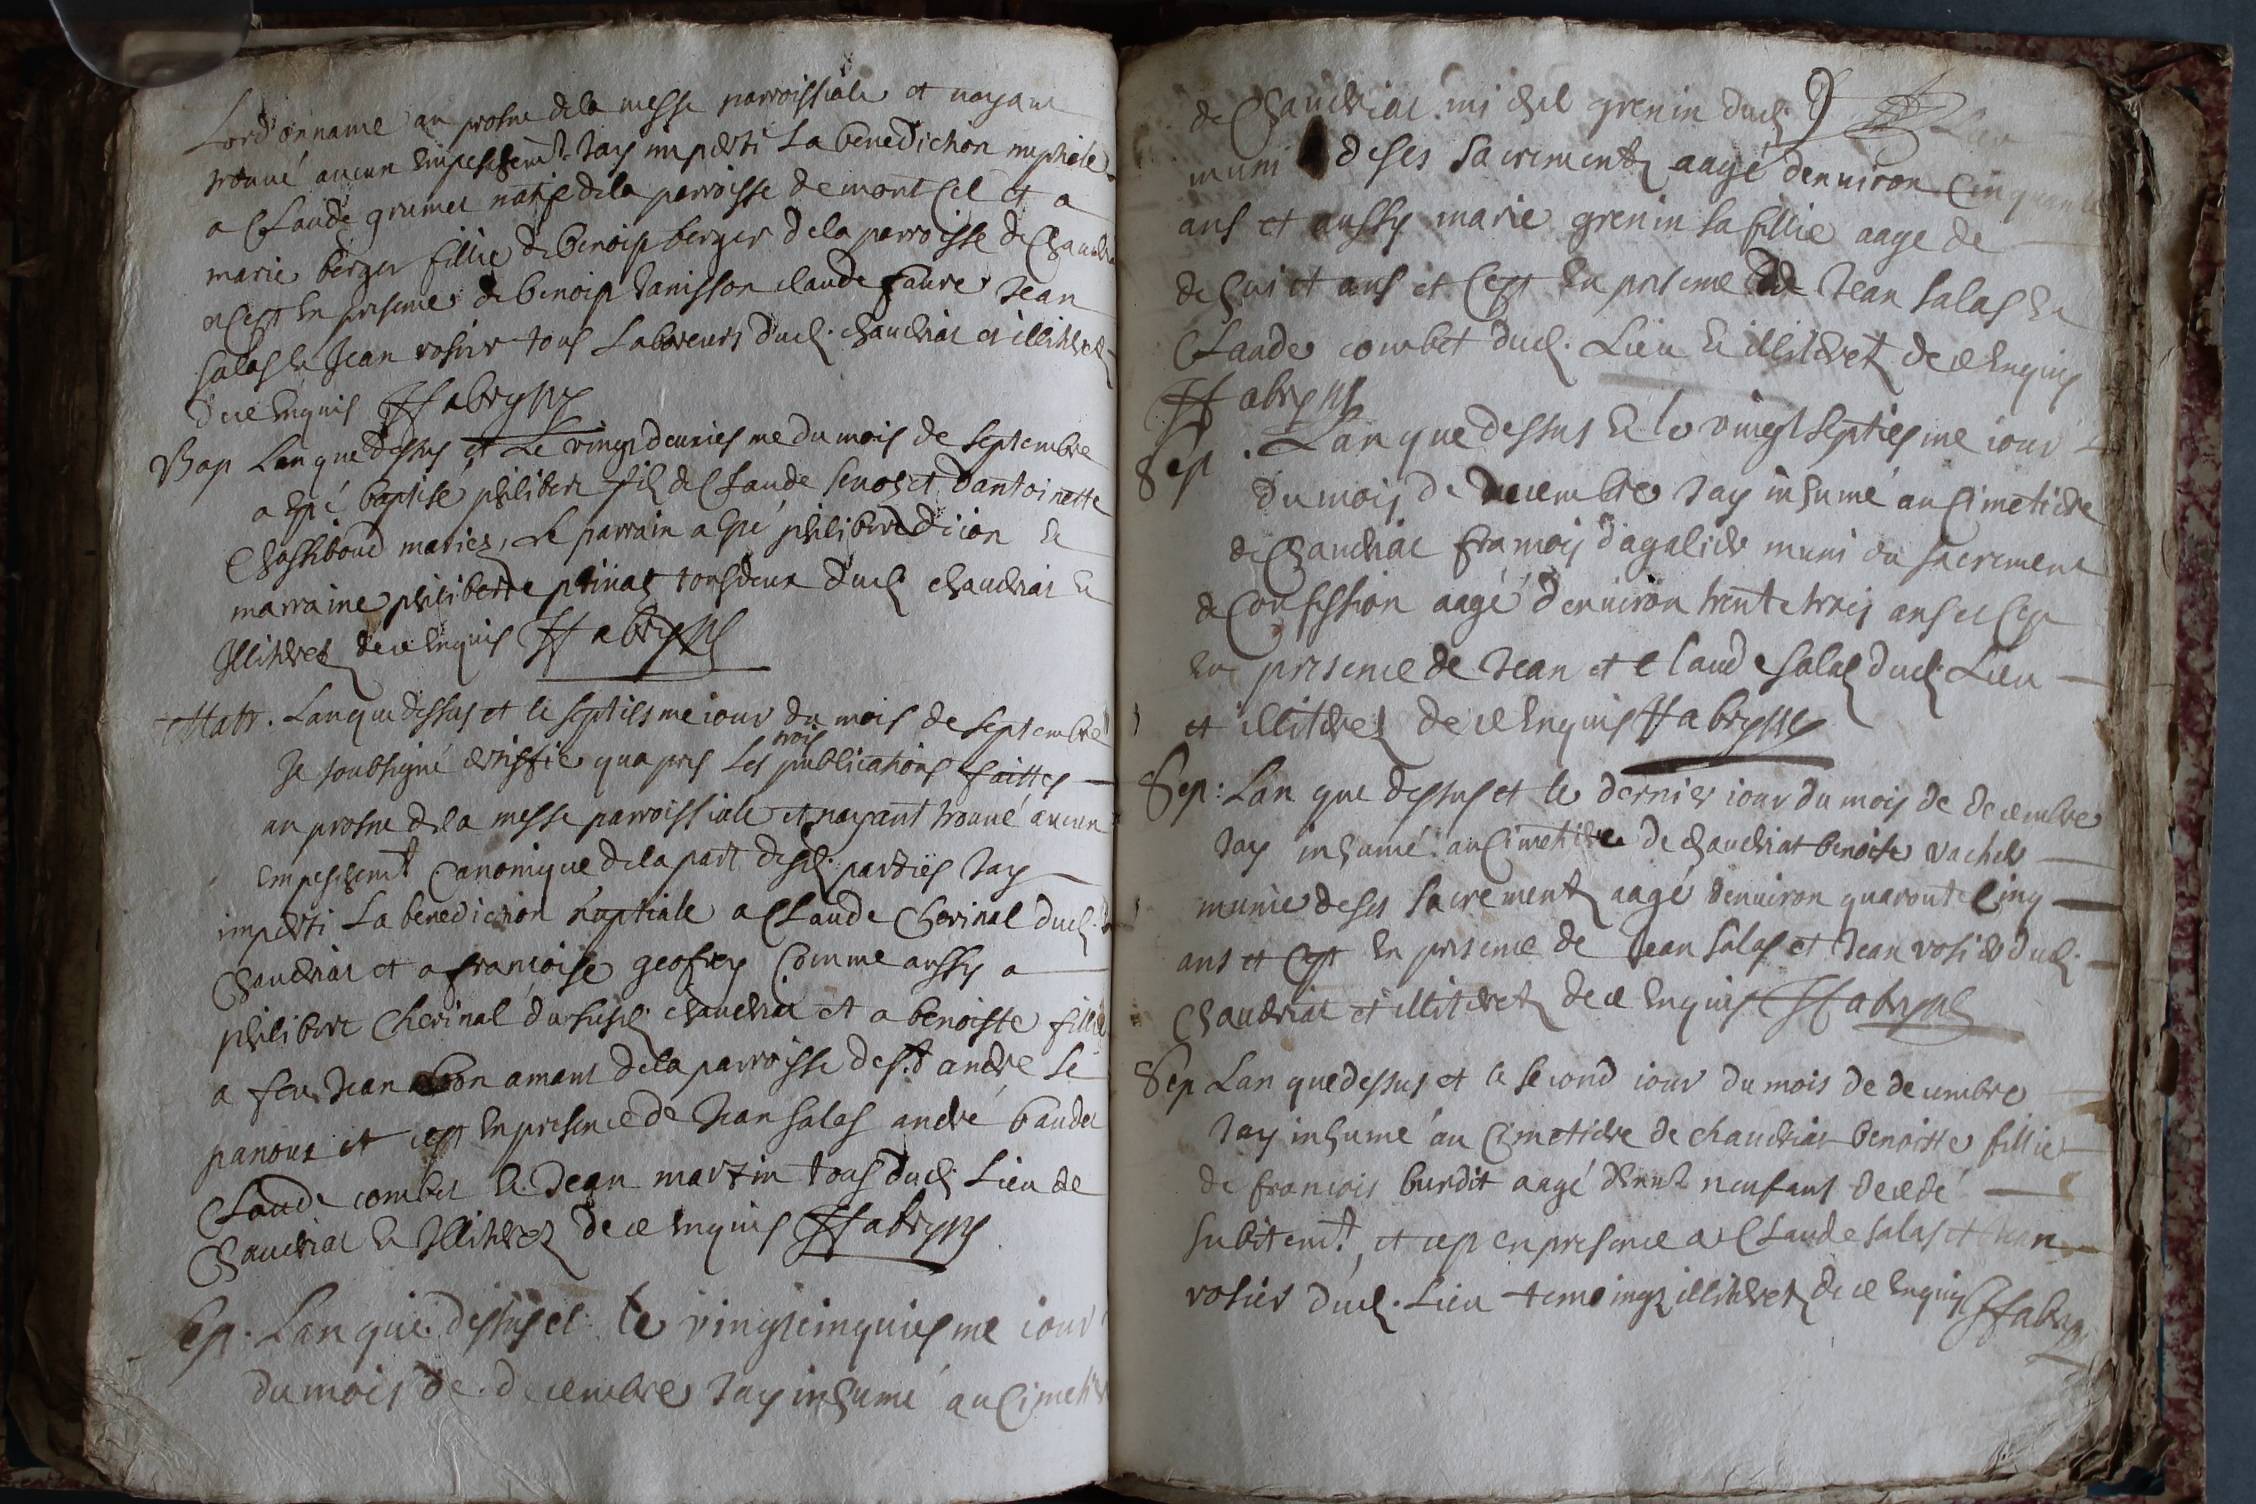 Lord'onname au prosne de la messe parroissiale et nayant
trouvé aucun empeschemt Jay imperti La benediction nuptiale
a Claude grumet natif de la parroisse de montcel et a
marie berger fillie de benoist berger de la parroisse de Chaudria
et cest en presence de benoist Janisson claude faure Jean
salas et Jean rosier tous Laboreurs dud. chaudriat et illitérés
de ce enquis ffabry
Bap Lan que dessus et Le vingtdeuxiesme du mois de septembre
a esté baptisé philibert filz de Claude et d'antoinette
mariez, Le parrain a esté philibert dcion et
marraine philiberte tous deux dud chaudriat et
Illitérez de ce enquis ffabry
Matr. Lan que dessus et le septiesme iour du mois de septembre
Je soubsigné certiffie quapres Les trois publications faittes
au prosne de la messe parroissiale et nayant trouvé aucun
empeschemt Canonique de la part desd. parties Jay
imperti La benediction nuptiale a Claude Cherinal dud.
Chaudriat et a francoise geofrey Comme aussy a
philibert Cherinal dususd. chaudriat et a benoiste fillie
a feu Jean bon amant de la parroisse de st andre le
panoux et cest en presence de Jean salas andré baudet
Claude combet et Jean martin tous dud. Lieu de
Chaudriat et Illitérez de ce enquis ffabry
Sep. Lan que dessus et le vingtcinquiesme iour
du mois de decembre Jay inhumé au Cimetiere
de Chaudriat michel grenin dud.
muni de ses sacrementz aagé denuiron Cinquante
ans et aussy marie grenin sa fillie aage de
dehuict ans et Cest en presence de Jean salas et
Claude combet dud. Lieu et illiterez de ce enquis
ffabry
Sep . Lan que dessus et le vingt septiesme iour
du mois de decembre Jay inhumé au Cimetiere
de Chaudriat francois dagalier muni du sacrement
de Confession aagé denuiron trente trois ans et Cest
en presence de Jean et Claude salas dud. Lieu
et illiterez de ce enquis ffabry
Sep: Lan que dessus et le dernier iour du mois de decembre
Jay inhumé au Cimetiere de chaudriat benoite vacher
munie de ses sacrementz aagé denuiron quarante Cinq
ans et Cest en presence de Jean salas et Jean rosier dud.
Chaudriat et illiterez de ce enquis ffabry
Sep Lan que dessus et le second iour du mois de decembre
Jay inhumé au Cimetiere de chaudriat benoitte fillie
de francois burdit aagé neuf ans decedé
subitemt, et cest en presence a Claude salas et Jean
rosier dud. Lieu temoingz illiterez de ce enquis ffabry